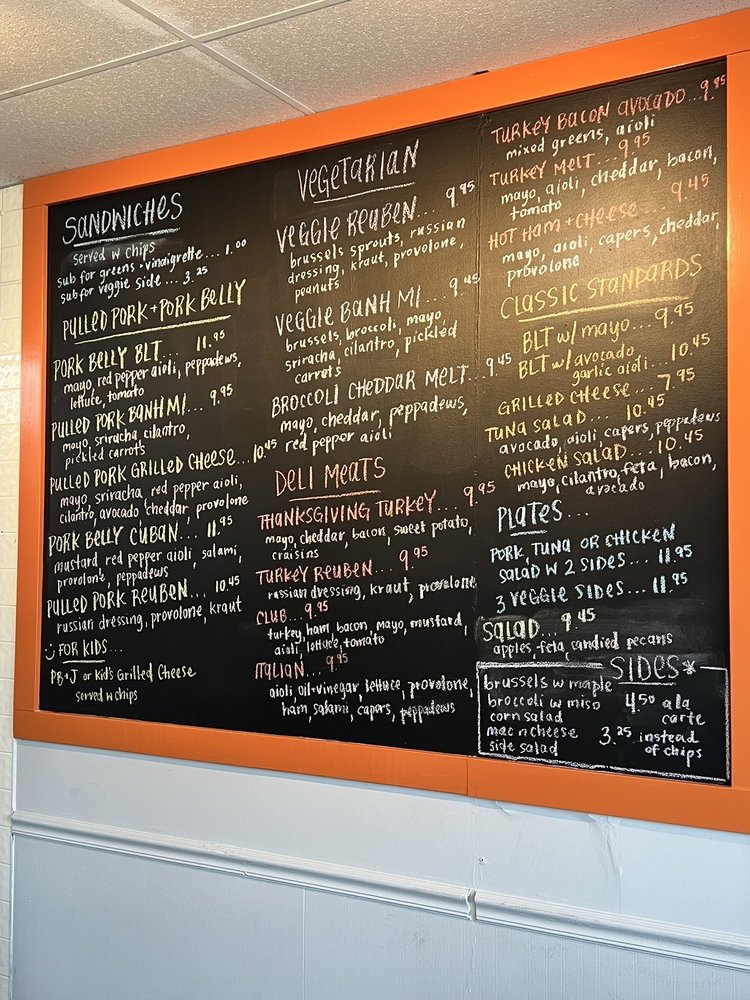 SANDWICHES
served w chips
sub for greens + vinaigrette... 1.00
sub for veggie side... 3.25
PULLED PORK + PORK BELLY
PORK BELLY BLT... 11.95
mayo, red pepper aioli, peppadews,
lettuce, tomato
PULLED PORK BANH MI... 9.95
mayo, sriracha, cilantro,
pickled carrots
PULLED PORK GRILLED CHEESE... 10.45
mayo, sriracha, red pepper aioli,
cilantro, avocado, cheddar, provolone
PORK BELLY CUBAN... 11.95
mustard, red pepper aioli, salami,
provolone, peppadews
PULLED PORK REUBEN... 10.45
russian dressing, provolone, kraut
FOR KIDS...
PB+J or Kid's Grilled Cheese
served w chips
VEGETARIAN
VEGGIE REUBEN... 9.95
brussels sprouts, russian
dressing, kraut, provolone,
peanuts
VEGGIE BANH MI... 9.45
brussels, broccoli, mayo,
sriracha, cilantro, pickled
carrots
BROCCOLI CHEDDAR MELT... 9.45
mayo, cheddar, peppadews,
red pepper aioli
DELI MEATS
THANKSGIVING TURKEY... 9.95
mayo, cheddar, bacon, sweet potato,
craisins
TURKEY REUBEN... 9.95
russian dressing, kraut, provolone
CLUB... 9.95
turkey, ham, bacon, mayo, mustard,
aioli, lettuce, tomato
ITALIAN... 9.95
aioli, oil+vinegar, lettuce, provolone,
ham, salami, capers, peppadews
TURKEY BACON AVOCADO... 9.95
mixed greens, aioli
TURKEY MELT... 9.95
mayo, aioli, cheddar, bacon,
tomato
HOT HAM + CHEESE... 9.45
mayo, aioli, capers, cheddar,
provolone
CLASSIC STANDARDS
BLT w/ mayo... 9.95
BLT w/ avocado
garlic aioli... 10.45
GRILLED CHEESE... 7.95
TUNA SALAD... 10.45
avocado, aioli, capers, peppadews
CHICKEN SALAD... 10.45
mayo, cilantro, feta, bacon,
avocado
PLATES...
PORK, TUNA OR CHICKEN
SALAD W 2 SIDES... 11.95
3 VEGGIE SIDES... 11.95
SALAD... 9.45
apples, feta, candied pecans
SIDES*
brussels w maple
broccoli w miso
corn salad
mac n cheese
side salad
4.50 a la
carte
3.25 instead
of chips